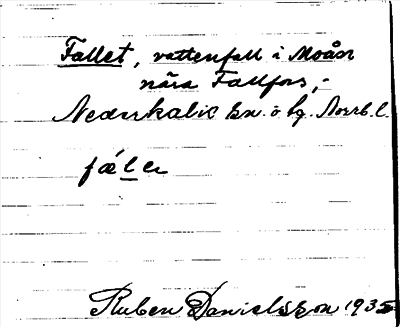 Fallet, vattenfall i Moån
nära Fallfors,-
Nederkalix sn. o. hg. Norrb. l.
fa̤ler
Ruben Danielsson 1935